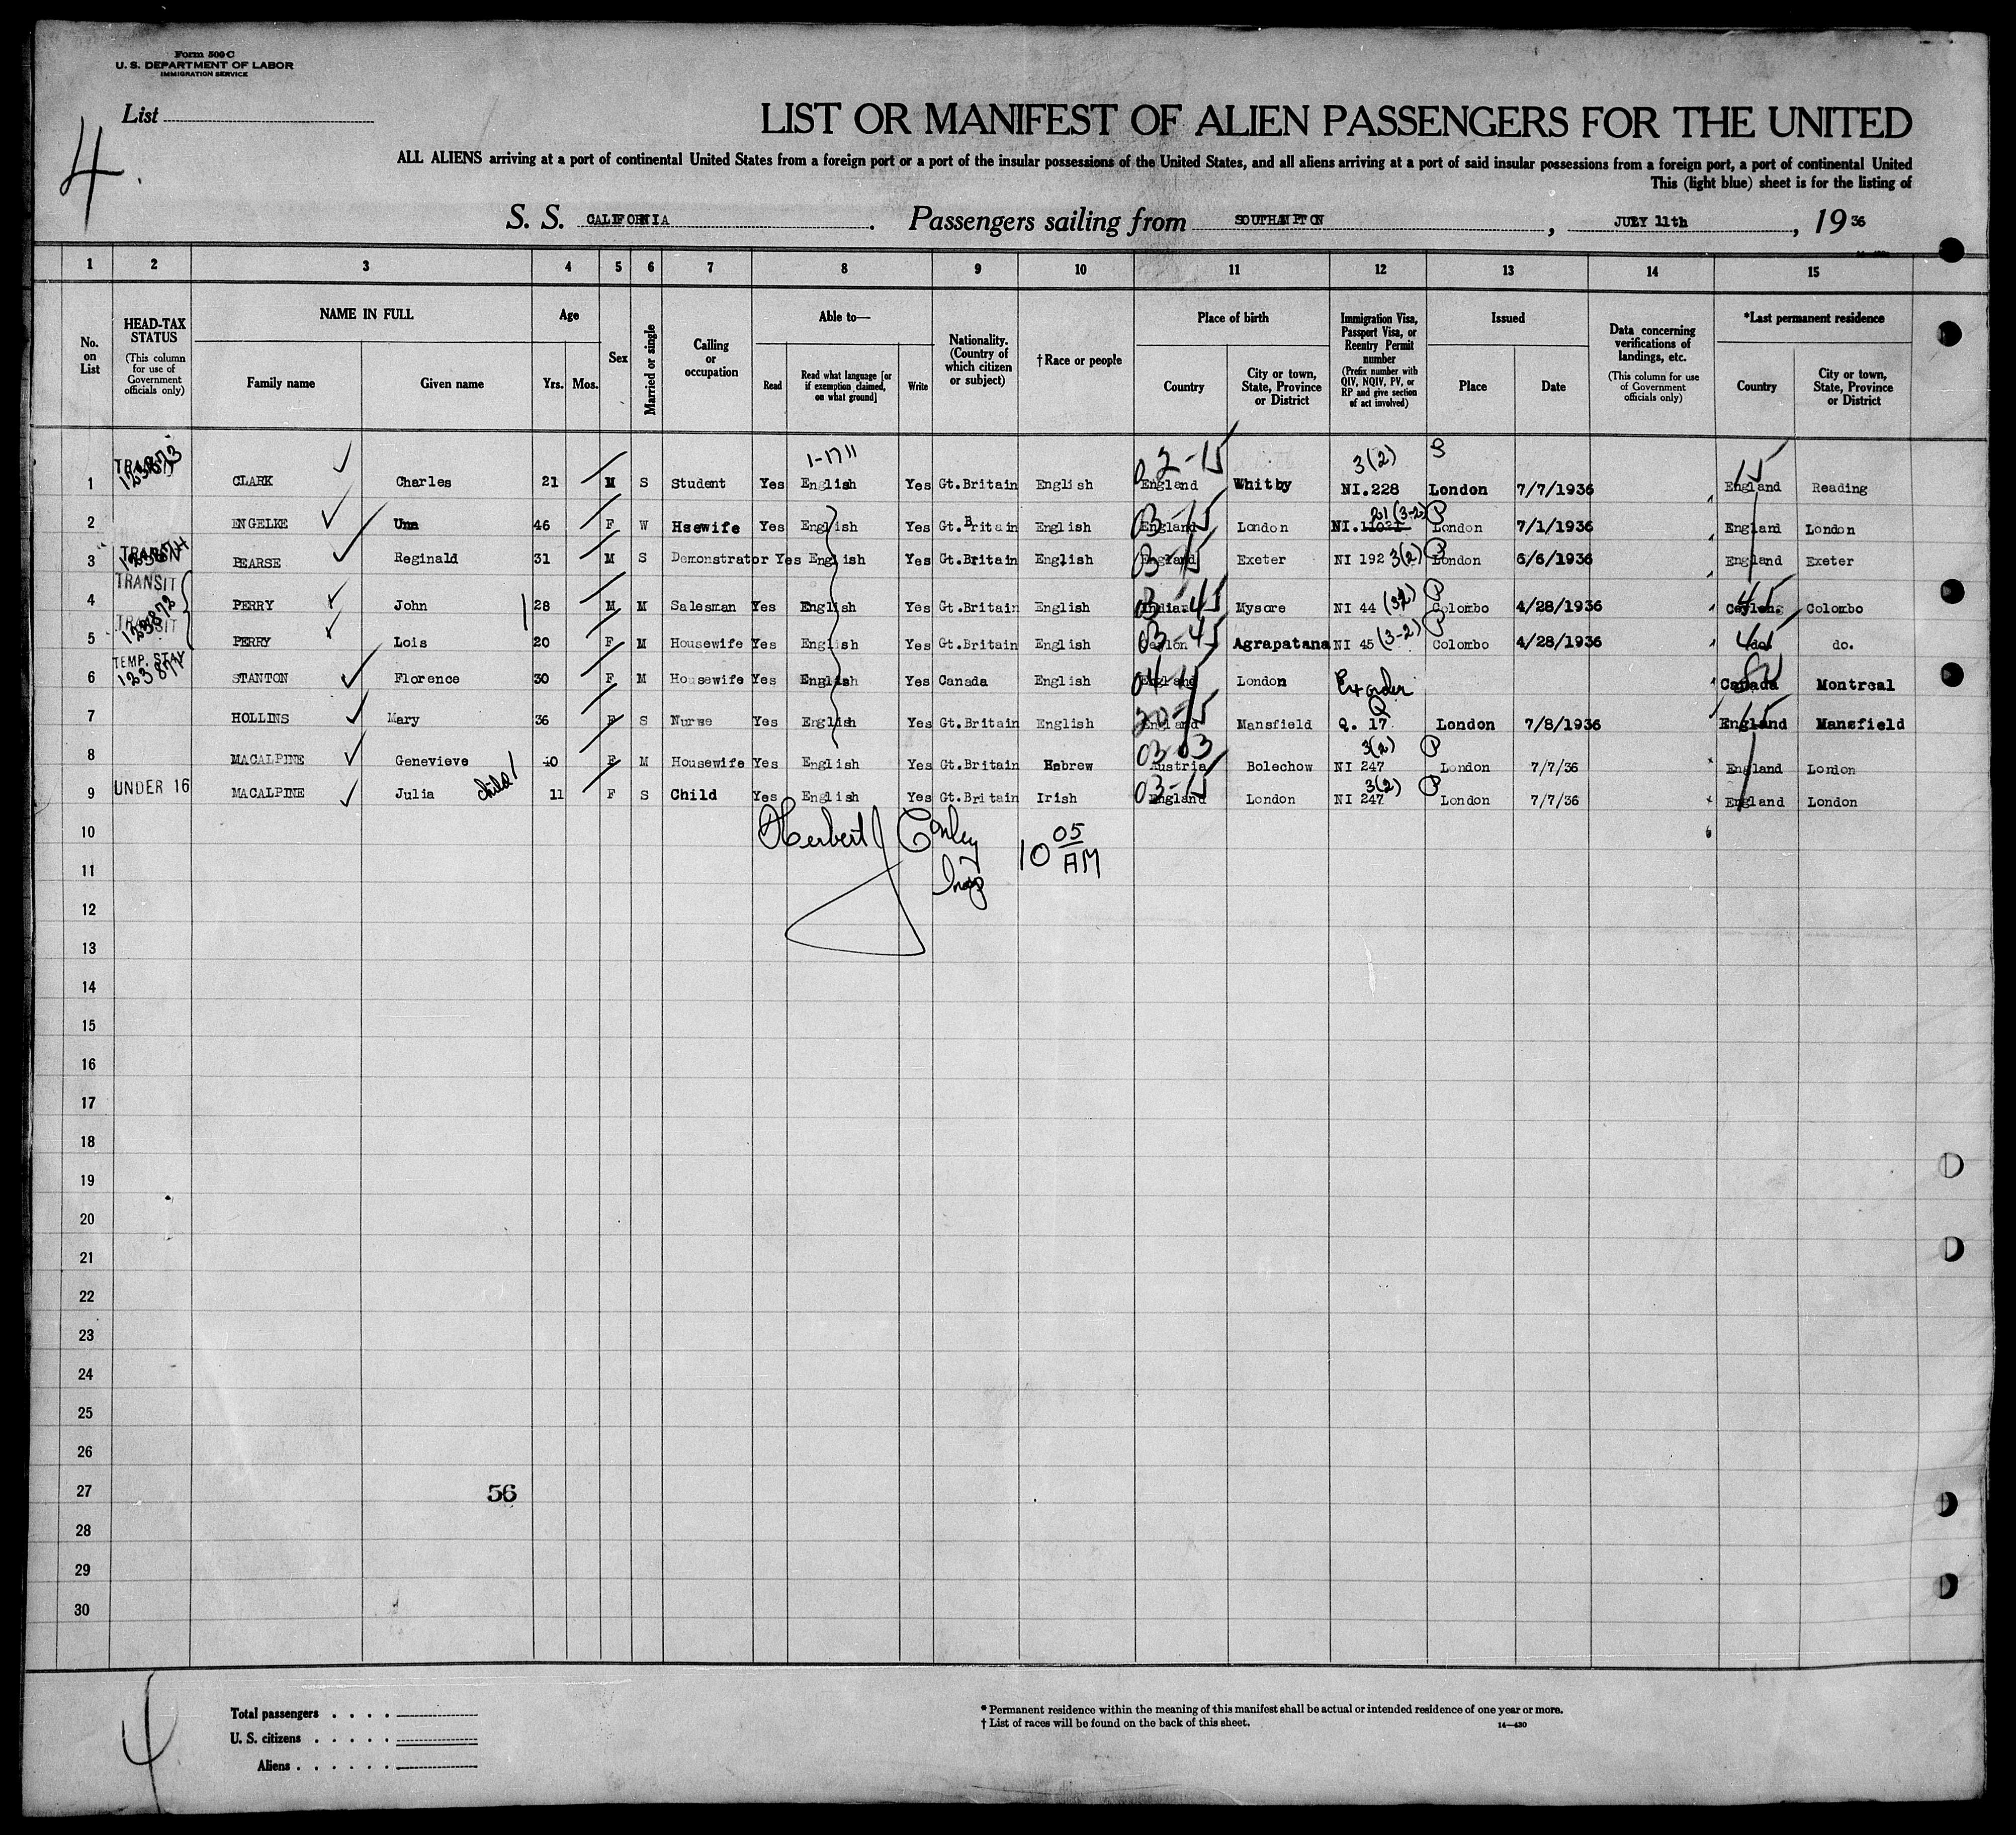 Form 500 C
U. S. DEPARTMENT OF LABOR
IMMIGRATION SERVICE
List
4
LIST OR MANIFEST OF ALIEN PASSENGERS FOR THE UNITED
ALL ALIENS arriving at a port of continental United States from a foreign port or a port of the insular possessions of the United States, and all aliens arriving at a port of said insular possessions from a foreign port, a port of continental United
This (light blue) sheet is for the listing of
S. S. CALIFORNIA. Passengers sailing from SOUTHAMPTON, JULY 11th, 1936
1 2 3 4 5 6 7 8 9 10 11 12 13 14 15
No. on List
HEAD-TAX STATUS (This column for use of Government officials only)
NAME IN FULL Family name Given name
Age Yrs. Mos.
Sex
Married or single
Calling or occupation
Able to— Read Read what language [or if exemption claimed, on what ground] Write
Nationality. (Country of which citizen or subject)
†Race or people
Place of birth Country City or town, State, Province or District
Immigration Visa, Passport Visa, or Reentry Permit number (Prefix number with QIV, NQIV, PV, or RP and give section of act involved)
Issued Place Date
Data concerning verifications of landings, etc. (This column for use of Government officials only)
*Last permanent residence Country City or town, State, Province or District
TRANSIT 123873 1-1711 02-15 3(2) S 15
1 CLARK Charles 21 M S Student Yes English Yes Gt.Britain English England Whitby NI.228 London 7/7/1936 England Reading
03-15 21(3-2) P
2 ENGELKE Una 46 F W Hsewife Yes English Yes Gt.Britain English England London NI.11021 London 7/1/1936 England London
TRANSIT 123874 03-15 P
3 PEARSE Reginald 31 M S Demonstrator Yes English Yes Gt.Britain English England Exeter NI 192 3(2) London 6/6/1936 England Exeter
TRANSIT 123872 03-45 P 45
4 PERRY John 28 M M Salesman Yes English Yes Gt.Britain English India Mysore NI 44 (32) Colombo 4/28/1936 Ceylon Colombo
TRANSIT 03-45 P 45
5 PERRY Lois 20 F M Housewife Yes English Yes Gt.Britain English Ceylon Agrapatana NI 45 (3-2) Colombo 4/28/1936 do. do.
TEMP. STAY 123871
6 STANTON Florence 30 F M Housewife Yes English Yes Canada English England London Canada Montreal
20-15 Q 15
7 HOLLINS Mary 36 F S Nurse Yes English Yes Gt.Britain English England Mansfield Q. 17 London 7/8/1936 England Mansfield
03 03 3(2) P
8 MACALPINE Genevieve 40 F M Housewife Yes English Yes Gt.Britain Hebrew Austria Bolechow NI 247 London 7/7/36 England London
UNDER 16 child 03-15 3(2) P
9 MACALPINE Julia 11 F S Child Yes English Yes Gt.Britain Irish England London NI 247 London 7/7/36 England London
10
Herbert J Conley
Insp
10 05 AM
11
12
13
14
15
16
17
18
19
20
21
22
23
24
25
26
27 56
28
29
30
4
Total passengers . . . .
U. S. citizens . . . . .
Aliens . . . . . .
* Permanent residence within the meaning of this manifest shall be actual or intended residence of one year or more.
† List of races will be found on the back of this sheet.
14—430